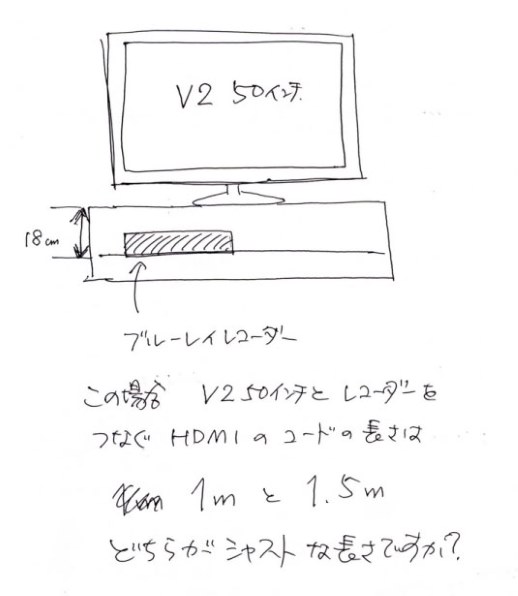 V2 50インチ
18cm
ブルーレイレコーダー
この場合 V2 50インチと レコーダーを
つなぐ HDMIのコードの長さは
1m と 1.5m
どちらが ジャストな長さですか?